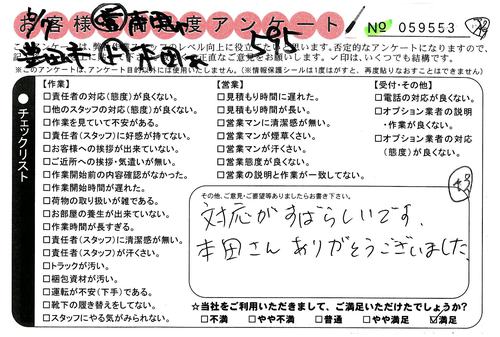 お客様満足度アンケート
№ 059553
595
このアンケートは、弊社
のレベル向上に役立
思います。否定的なアンケートになりますので、
直にご意見下さい。✓印は、いくつでも結構です。
※このアンケートは、アンケート目的以外には使用いたしません。(※情報保護シールは1度はがすと、再度貼りなおすことはできません。)
チェックリスト
【作業】
□責任者の対応(態度)が良くない。
□他のスタッフの対応(態度)が良くない。
□作業を見ていて不安がある。
□責任者(スタッフ)に好感が持てない。
□お客様への挨拶が出来ていない。
□ご近所への挨拶・気遣いが無い。
□作業開始前の内容確認がなかった。
□作業開始時間が遅れた。
□荷物の取り扱いが雑である。
□お部屋の養生が出来ていない。
□作業時間が長すぎる。
□責任者(スタッフ)に清潔感が無い。
□責任者(スタッフ)が汗くさい。
□トラックが汚い。
□梱包資材が汚い。
□運転が不安(下手)である。
□靴下の履き替えをしてない。
□スタッフにやる気がみられない。
【営業】
□見積もり時間に遅れた。
□見積もり時間が長い。
□営業マンに清潔感が無い。
□営業マンが煙草くさい。
□営業マンが汗くさい。
□営業態度が良くない。
□営業の説明と作業が一致してない。
【受付・その他】
□電話の対応が良くない。
□オプション業者の説明
・作業が良くない。
□オプション業者の対応
(態度)が良くない。
その他、ご意見・ご要望等ありましたらお書き下さい。
対応がすばらしいです。
本田さん ありがとうございました
☆当社をご利用いただきまして、ご満足いただけたでしょうか?
□不満 □やや不満 □普通 □やや満足 ☑満足